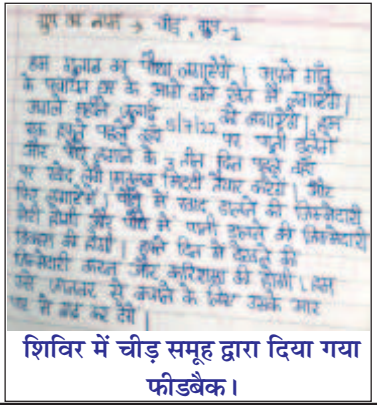 ग्रुप का नाम → चीड़, ग्रुप-2
हम गुलाब का पौधा लगाएंगे। अपने गाँव
के पंचायत घर के आगे वाले खेत में लगाएंगे।
अगले महीने जुलाई को लगाएंगे। हम
एक हफ्ते पहले 5/7/22 पर डालेंगे
और पौधे लगाने के 3 तीन दिन पहले वहाँ
पर खाद मिट्टी तैयार करेंगे। और
फिर लगाएंगे। पौधे में खाद डालने की जिम्मेदारी
मेरी होगी और पौधे में पानी डालने की जिम्मेदारी
की होगी। दिन में देखने की
जिम्मेदारी करन और करिश्मा की होगी। हम
उसे जानवर से बचाने के लिए उसके चार
कर देंगे।
शिविर में चीड़ समूह द्वारा दिया गया
फीडबैक।